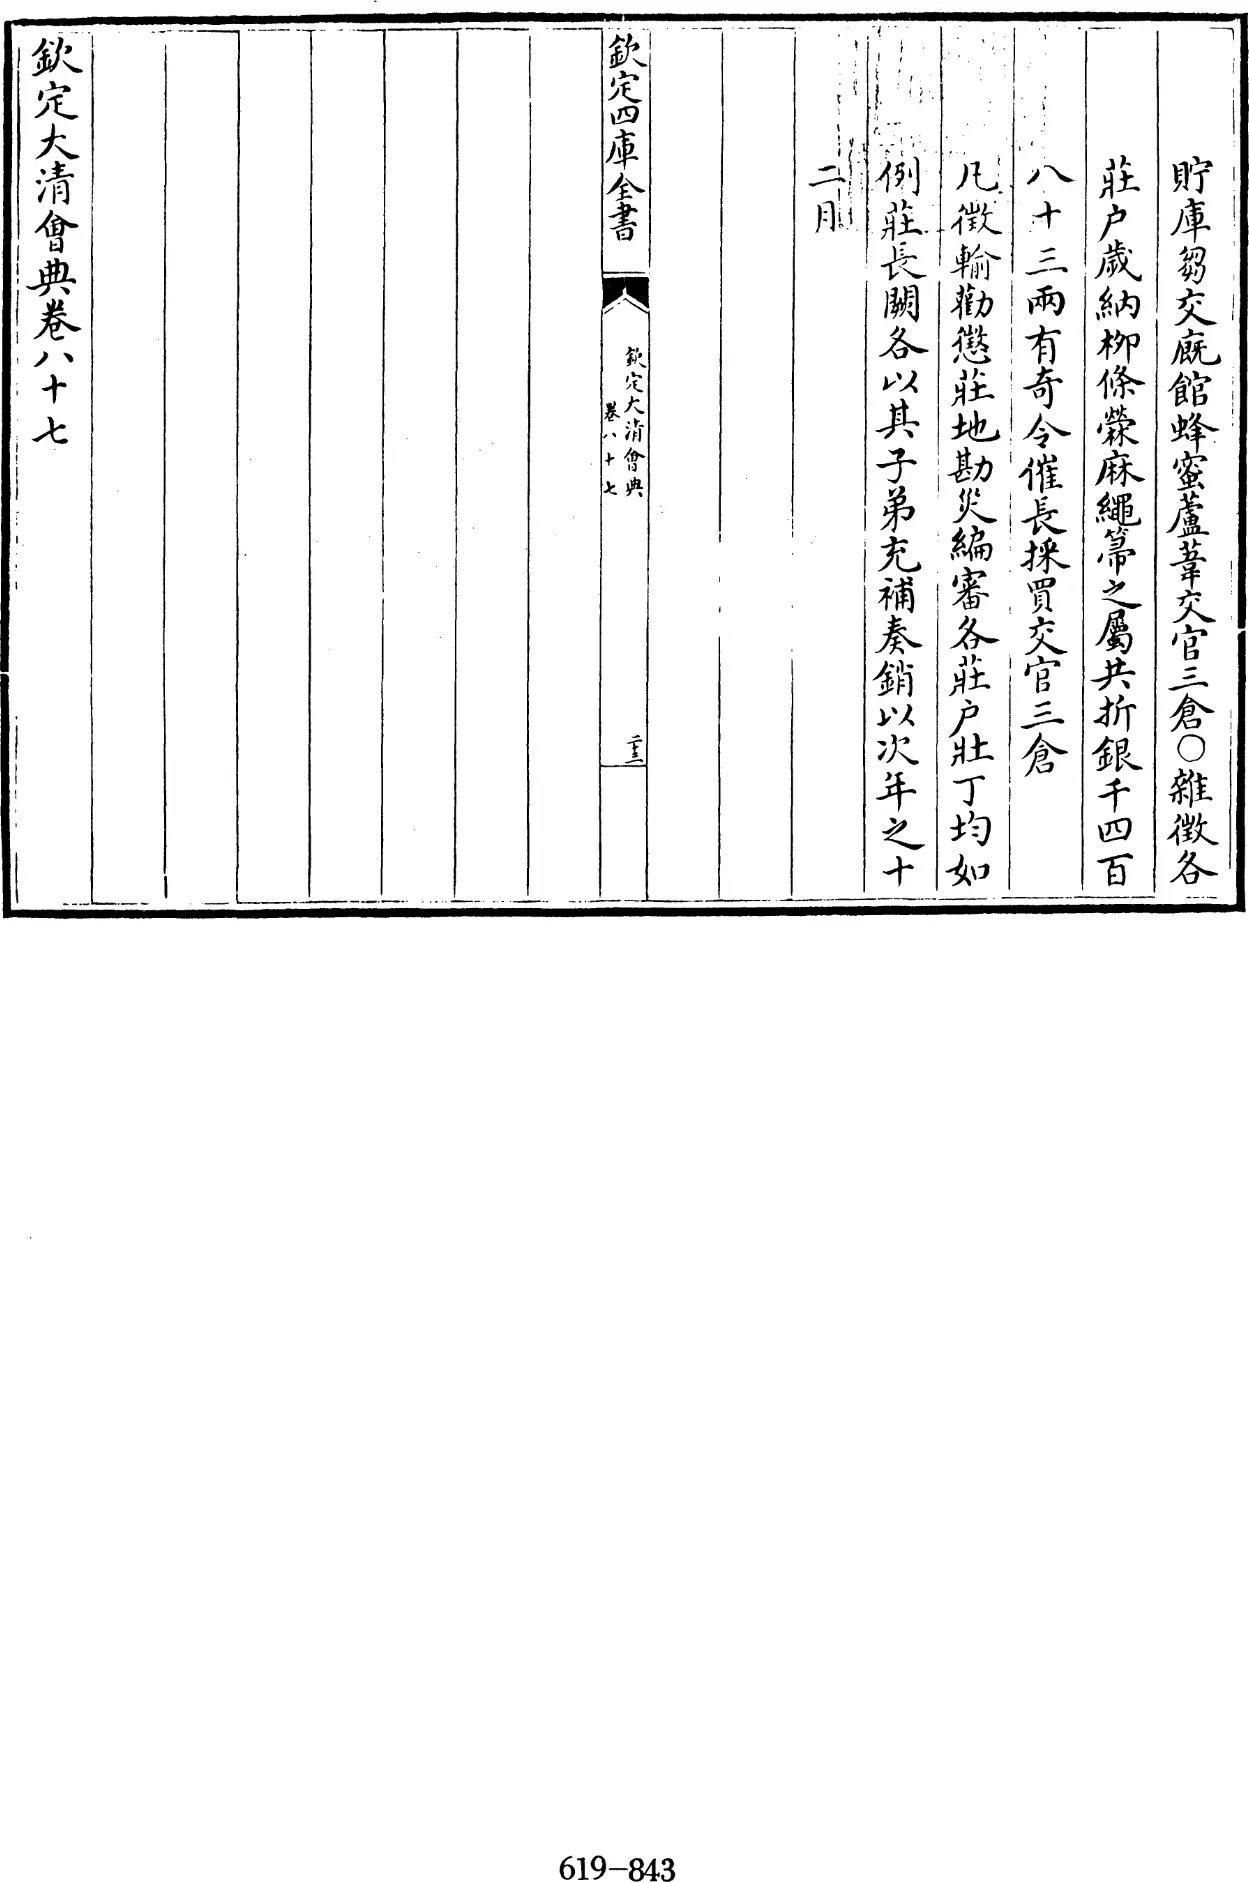 貯庫芻交廐館蜂蜜蘆葦交官三倉○雜徵各
莊户歲納柳條檾麻繩箒之屬共折銀千四百
八十三兩有奇令催長採買交官三倉
凡徵輸勸懲莊地勘災編審各莊户壯丁均如
例莊長闕各以其子弟充補奏銷以次年之十
二月
欽定四庫全書
欽定大清會典
卷八十七
二十三
欽定大清會典卷八十七
619-843